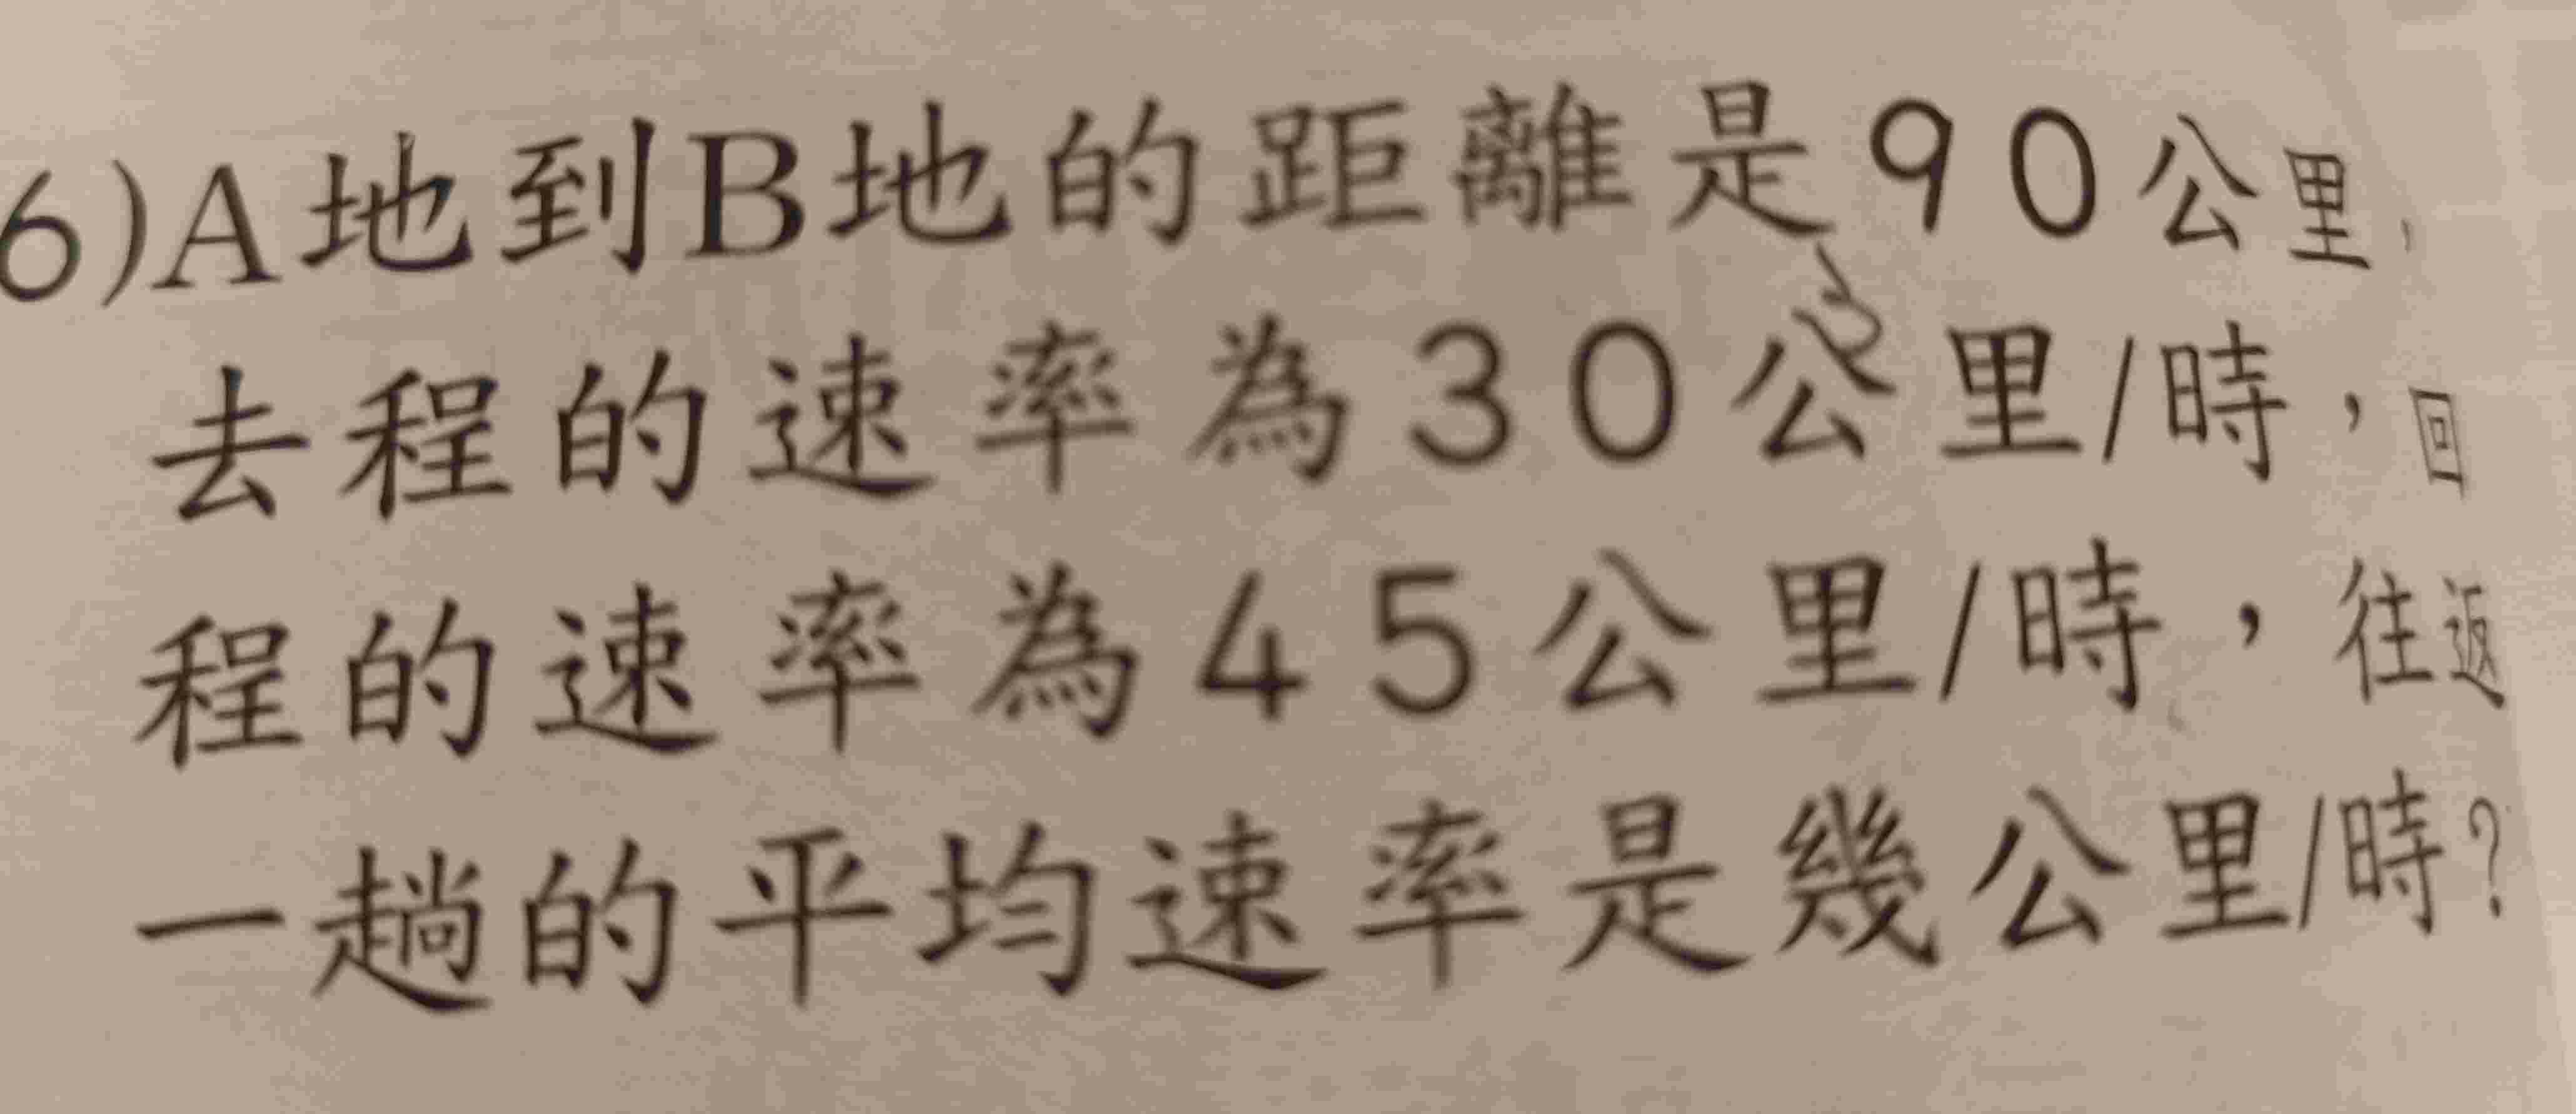 6)A地到B地的距離是90公里，
去程的速率為30公里/時，回
程的速率為45公里/時，往返
一趟的平均速率是幾公里/時？